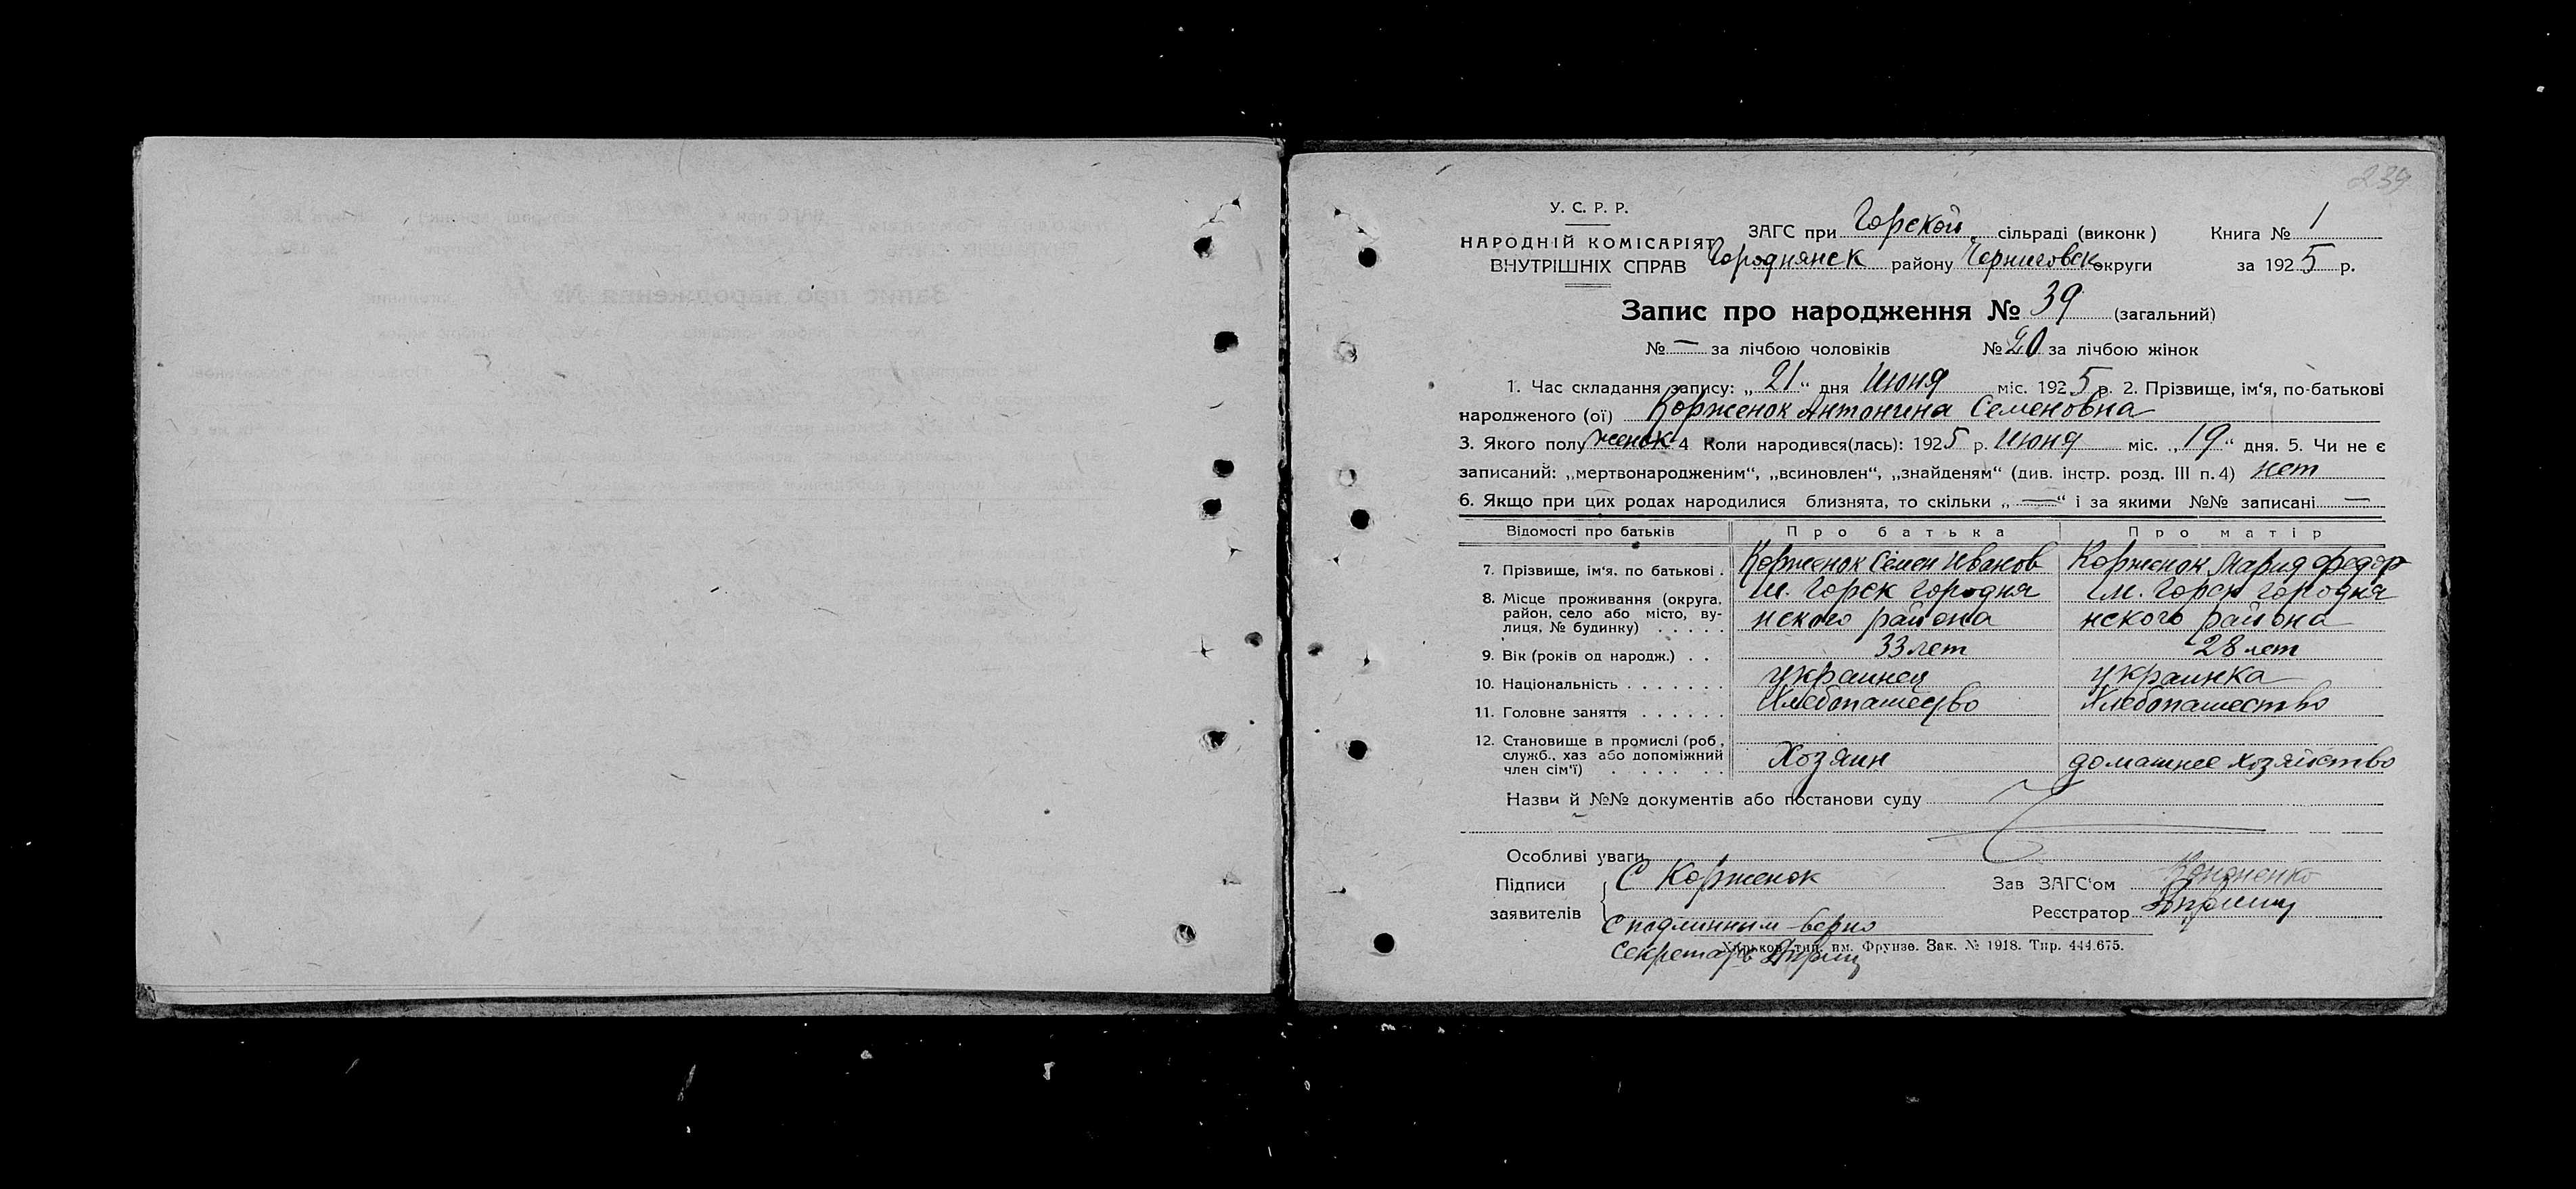 239
У. С. Р. Р.
НАРОДНІЙ КОМІСАРІЯТ
ВНУТРІШНІХ СПРАВ
ЗАГС при Горской сільраді (виконк) Книга № 1
Городнянск району Черниговск округи за 1925 р.
Запис про народження № 39 (загальний)
№ — за лічбою чоловіків № 20 за лічбою жінок
1. Час складання запису: „21“ дня Июня міс. 1925 р. 2. Прізвище, ім‘я, по-батькові
народженого (ої) Корженок Антонина Семеновна
3. Якого полу женск 4 Коли народився(лась): 1925 р. Июня міс. „19“ дня. 5. Чи не є
записаний: „мертвонародженим“, „всиновлен“, „знайденям“ (див. інстр. розд. III п. 4) нет
6. Якщо при цих родах народилися близнята, то скільки „—“ і за якими №№ записані —
Відомості про батьків Про батька Про матір
7. Прізвище, ім‘я. по батькові . Корженок Семен Иванов Корженок Мария Федор
8. Місце проживання (округа, район, село або місто, вулиця, № будинку) . . . . . м. Горск Городня м. Горск Городня
нского района нского района
9. Вік (років од народж.) . . 33 лет 28 лет
10. Національність . . . . . . . украинец украинка
11. Головне заняття . . . . . . Хлебопашество Хлебопашество
12. Становище в промислі (роб., служб., хаз або допоміжний член сім‘ї) . . . . . . Хозяин домашнее хозяйство
Назви й №№ документів або постанови суду
Особливі уваги
Підписи
заявителів
С Корженок
Зав ЗАГС‘ом Кононенко
Реєстратор
С подлинным верно
Секретарь
Харьков, тип. им. Фрунзе. Зак. № 1918. Тир. 444.675.